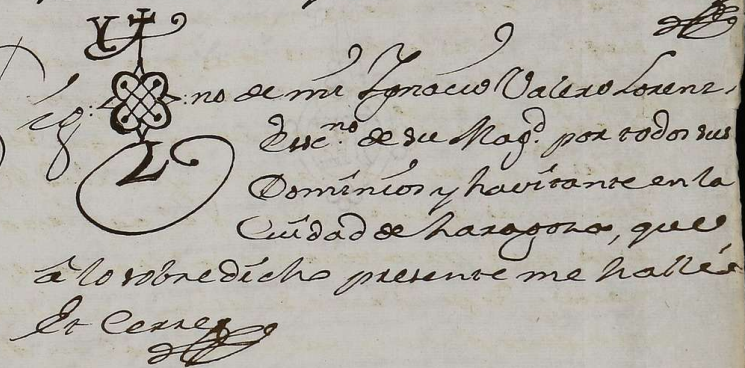 Sig no de mi Ygnacio Valero Lorenz,
Essc.no de su Mag.d por todos sus
Dominios y havitante en la
Ciudad de Zaragoza, que
â lo sobredicho presente me hallé
Et Cerre